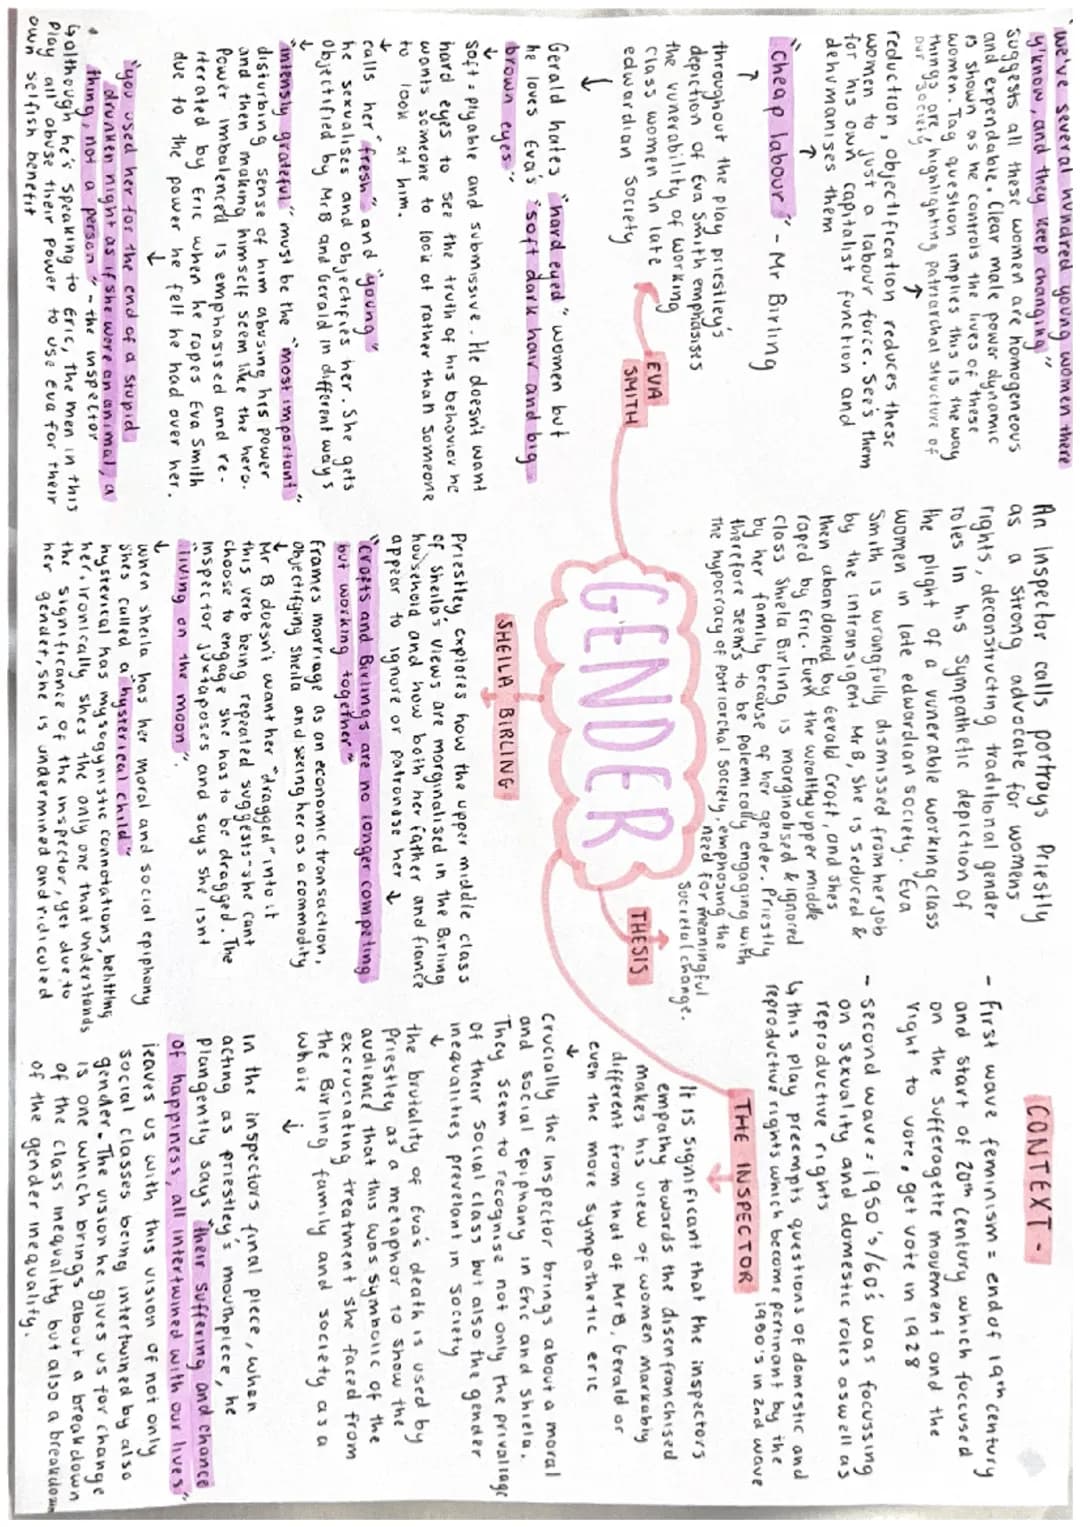 "we've several hundred young women there
y'know, and they keep changing"
suggests all these women are homogeneous
and expendable. Clear male power dynamic
is shown as he controls the lives of these
women. Tag question implies this is the way
things are, highlighting patriarchal structure of
our society
reduction, objectification reduces these
women to just a labour force. See's them
for his own capitalist function and
dehumanises them
"cheap labour" - Mr Birling
throughout the play priestley's
depiction of Eva Smith emphasises
the vunerability of working
class women in late
edwardian society
EVA
SMITH
Gerald hates "hard eyed" women but
he loves Eva's "soft dark hair and big
brown eyes"
soft = plyable and submissive. He doesn't want
hard eyes to see the truth of his behaviour he
wants someone to look at rather than someone
to look at him.
calls her "fresh" and "young"
he sexualises and objectifies her. She gets
objectified by Mr B and Gerald in different ways
"intensly grateful" must be the "most important"
disturbing sense of him abusing his power
and then making himself seem like the hero.
Power imbalenced is emphasised and re-
iterated by Eric when he rapes Eva Smith
due to the power he felt he had over her.
"you used her for the end of a stupid
drunken night as if she were an animal, a
thing, not a person" - the inspector
although he's speaking to Eric, the men in this
play all abuse their power to use Eva for their
own selfish benefit
An inspector calls portrays Priestly
as a strong advocate for womens
rights, deconstructing traditional gender
roles in his sympathetic depiction of
the plight of a vunerable working class
women in late edwardian society. Eva
Smith is wrongfully dismissed from her job
by the intransigent Mr B, she is seduced &
then abandoned by Gerald Croft, and she's
raped by Eric. Even the wealthy upper middle
class Shiela Birling is marginalised & ignored
by her family because of her gender. Priestly
therefore seem's to be polemically engaging with
the hypocracy of patriarchal society, emphasing the
need for meaningful
societal change.
GENDER
THESIS
SHEILA BIRLING
Priestley, explores how the upper middle class
of Sheila's views are marginalised in the Birling
household and how both her father and fiance
appear to ignore or patronise her
"Crofts and Birlings are no longer competing
but working together"
frames marriage as an economic transaction,
objectifying Sheila and seeing her as a commodity
Mr B doesn't want her "dragged" into it
this verb being repeated suggests she cant
choose to engage she has to be dragged. The
inspector juxtaposes and says she isnt
"living on the moon".
when sheila has her moral and social epiphony
shes called a "hysterical child"
hysterical has mysogynistic connotations, belitting
her, ironically she's the only one that understands
the significance of the inspector, yet due to
her gender, she is undermined and ridiculed
CONTEXT -
- First wave feminism = end of 19th century
and start of 20th century which foccused
on the sufferogette movement and the
right to vote, get vote in 1928
- second wave = 1950's/60's was focussing
on sexuality and domestic roles aswell as
reproductive rights
this play preempts questions of domestic and
reproductive rights which become pertinant by the
1950's in 2nd wave
THE INSPECTOR
It is significant that the inspectors
empathy towards the disenfranchised
makes his view of women markably
different from that of Mr B, Gerald or
even the more sympathetic eric
crucially the inspector brings about a moral
and social epiphany in Eric and shiela.
They seem to recognise not only the privallage
of their social class but also the gender
inequalites prevelant in society
the brutality of Eva's death is used by
Priestley as a metaphor to show the
audience that this was symbolic of the
excruciating treatment she faced from
the Birling family and society as a
whole
In the inspectors final piece, when
acting as priestley's mouthpiece, he
plangently says "their suffering and chance
of happiness, all intertwined with our lives"
leaves us with this vision of not only
social classes being intertwined by also
gender. The vision he gives us for change
is one which brings about a breakdown
of the class inequality but also a breakdown
of the gender inequality.